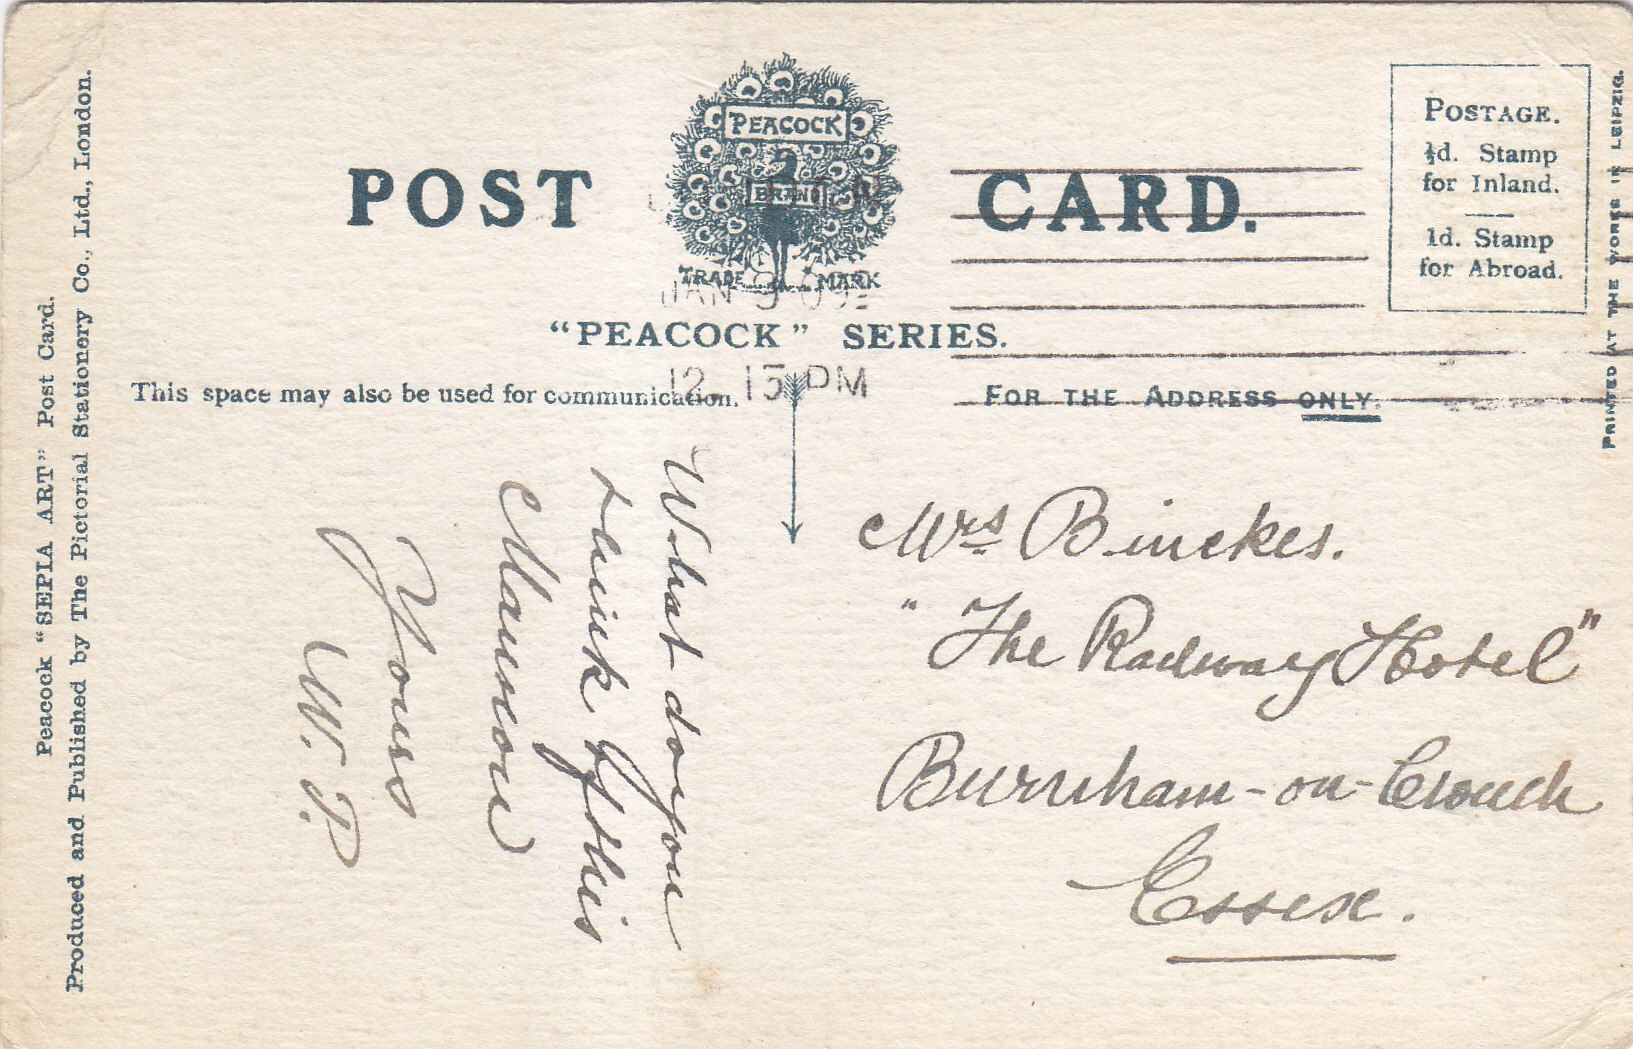 POST CARD.
PEACOCK
BRAND
TRADE MARK
JAN 9 09
12.15 PM
"PEACOCK" SERIES.
POSTAGE.
½d. Stamp
for Inland.
1d. Stamp
for Abroad.
PRINTED AT THE WORKS IN LEIPZIG.
Peacock "SEPIA ART" Post Card.
Produced and Published by The Pictorial Stationery Co., Ltd., London.
This space may also be used for communication.
FOR THE ADDRESS ONLY.
What do you
think of this
Mansion
Yours
W. P.
Mrs Binckes.
"The Railway Hotel"
Burnham-on-Crouch
Essex.